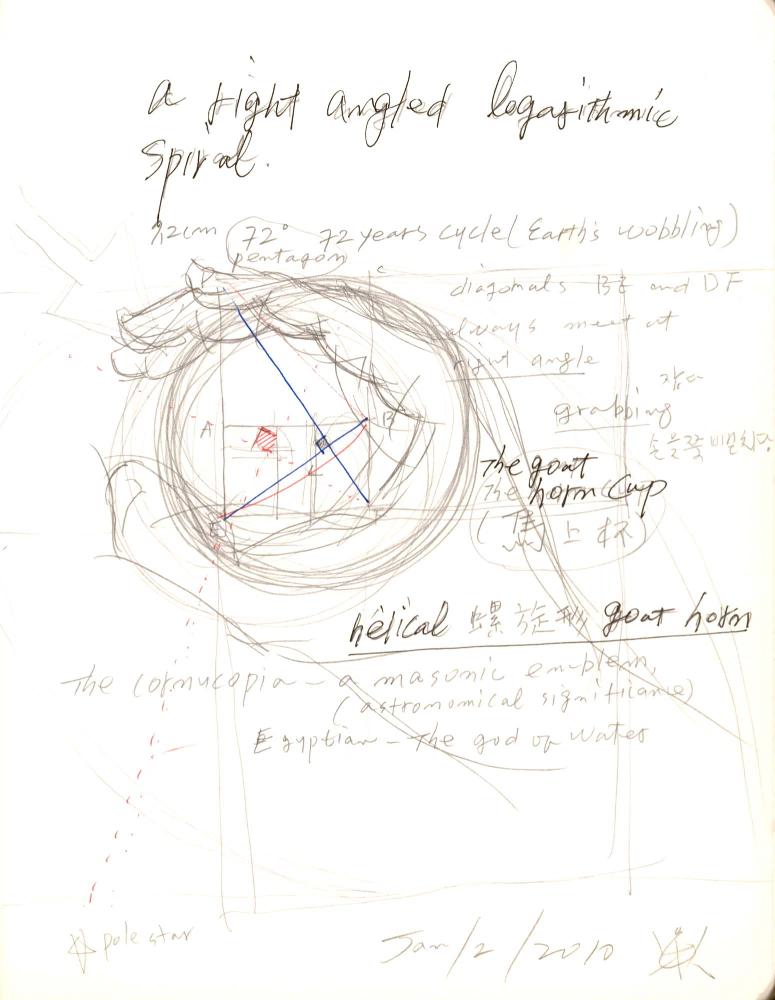 a right angled logarithmic
spiral.
72° 72 years cycle (Earth's wobbling)
pentagon
C
diagonals BE and DF
always meet at
right angle
A
B
grabbing
E
The goat
The horn cup
(馬上杯)
helical 螺旋 goat horn
The cornucopia - a masonic emblem,
(astronomical significance)
Egyptian - The god of water
pole star
Jan/2/2010